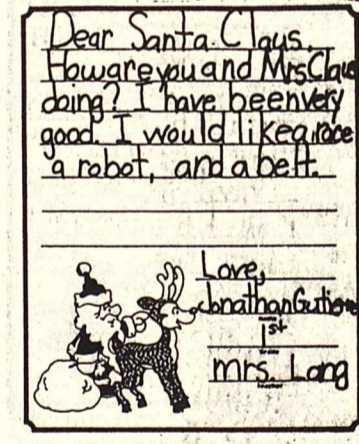 Dear Santa Claus.
How are you and Mrs Claus
doing? I have been very
good. I would like a race
a robot, and a belt.
Love,
Jonathan
1st
mrs. Lang